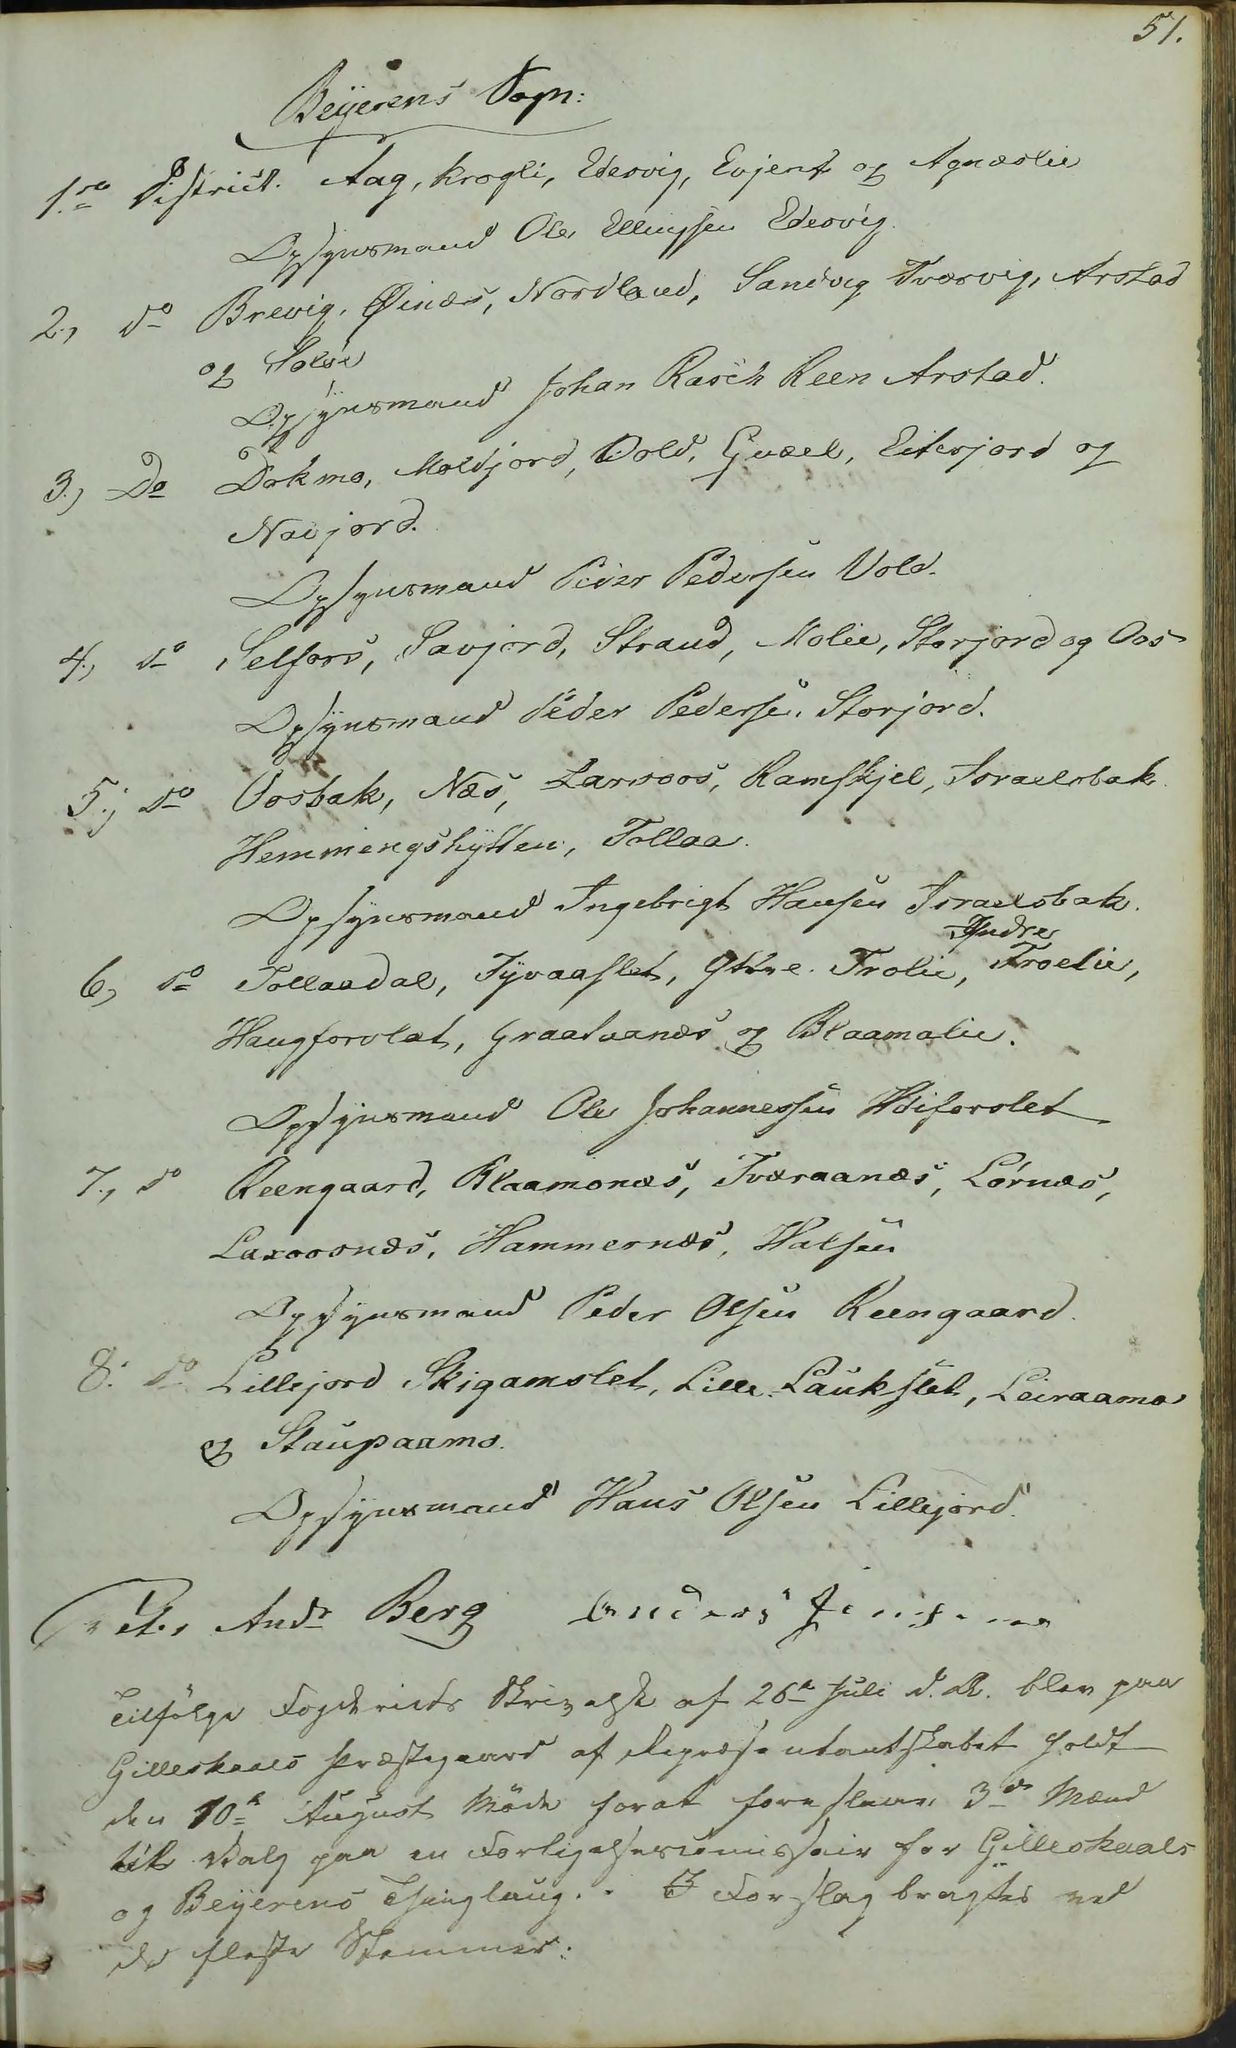 51.
Beÿerens Sogn:
1.ro District. Aag, Krogli, Edesvig, Evjent og Agnæslie
Opsynsmand Ole Ellingsen Edesvig.
2., do Brevig, Øinæs, Nordland, Sandvig Tværvig, Arstad
og Solø
Opsÿnsmand Johan Rasch Reen Arstad.
3., Do Dokmo, Moldjord, Vold, Gvæl, Eiterjord og
Navjord.
Opsynsmand Peder Pedersen Vold.
4., do Selfors, Savjord, Strand, Molie, Storjord og Oos
Opsÿnsmand Peder Pedersen Storjord.
5., do Vosbak, Næs, Larsoos, Ramskjel, Israelsbak
Hemmingshÿtten, Tollaa.
Opsÿnsmand Ingebrigt Hansen Israelsbak.
6, do Tollaadal, Tÿvaaslet, Ÿttre Trolie, Indre Troelie,
Haugforslet, Graataanæs og Blaamolie.
Opsÿnsmand Ole Johannessen
7., do Reengaard, Blaamonæs, Tværaanæs, Lørnæs,
Laxoosnæs, Hammernæs, Halsen
Opsynsmand Peder Olsen Reengaard.
8. do Lillejord Skigamslet, Lille Laukslet, Leiraamo
og Staupaamo.
Opsÿnsmand Hans Olsen Lillejord.
Peter Andr Berg Anders Jensen
Tilfølge Fogderiets Skrivelse af 26e Juli d. A. blev paa
Gilleskaals Præstegaard af Repræsentantskabet holdt
den 10e August Møde forat foreslaae 3de Mænd
til Valg paa en Forligelsescomissair for Gilleskaals
og Beÿerens Thinglaug. I Forslag bragtes ved
de fleste Stemmer: